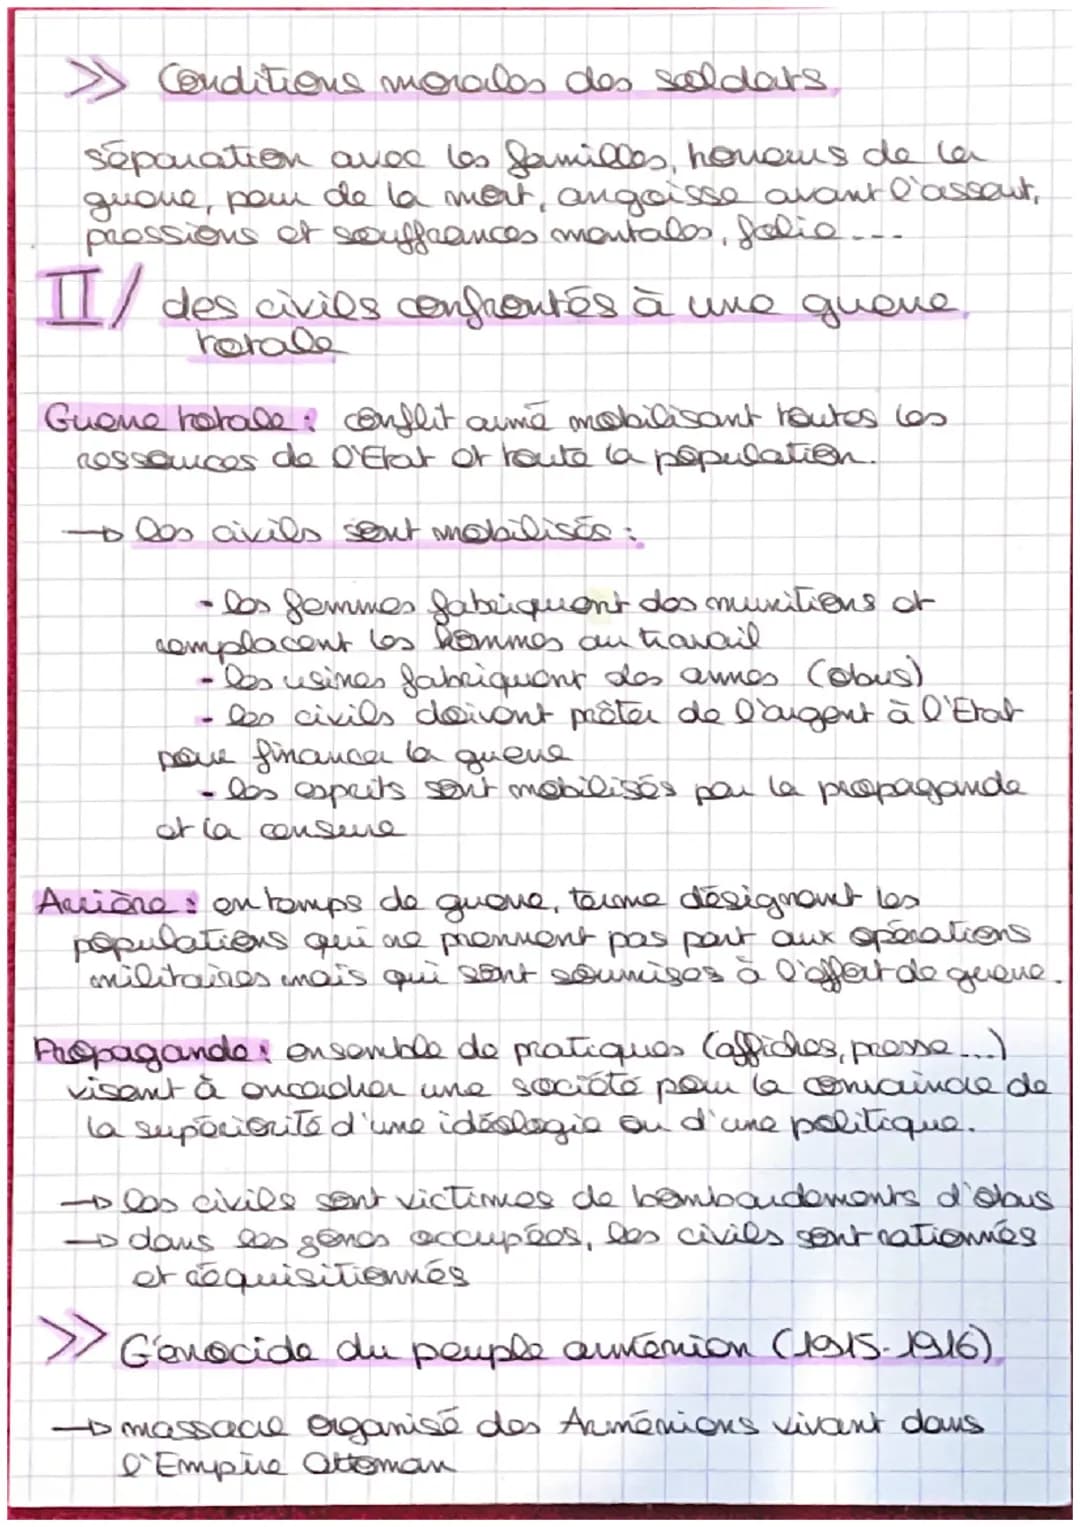 >> Conditions morales des soldats
séparation avec les familles, horreurs de la
guerre, peur de la mort, angoisse avant l'assaut,
pressions et souffrances mentales, folie...
II/ des civils confrontés à une guerre
totale
Guerre totale : conflit armé mobilisant toutes les
ressources de l'Etat et toute la population.
→ les civils sont mobilisés :
- les femmes fabriquent des munitions et
remplacent les hommes au travail
- les usines fabriquent des armes (obus)
- les civils doivent prêter de l'argent à l'Etat
pour financer la guerre
- les esprits sont mobilisés par la propagande
et la censure
Arrière : en temps de guerre, terme désignant les
populations qui ne prennent pas part aux opérations
militaires mais qui sont soumises à l'effort de guerre.
Propagande : ensemble de pratiques (affiches, presse...)
visant à encadrer une société pour la convaincre de
la supériorité d'une idéologie ou d'une politique.
→ les civils sont victimes de bombardements d'obus
→ dans les zones occupées, les civils sont rationnés
et réquisitionnés
>> Génocide du peuple arménien (1915-1916)
→ massacre organisé des Arméniens vivant dans
l'Empire Ottoman